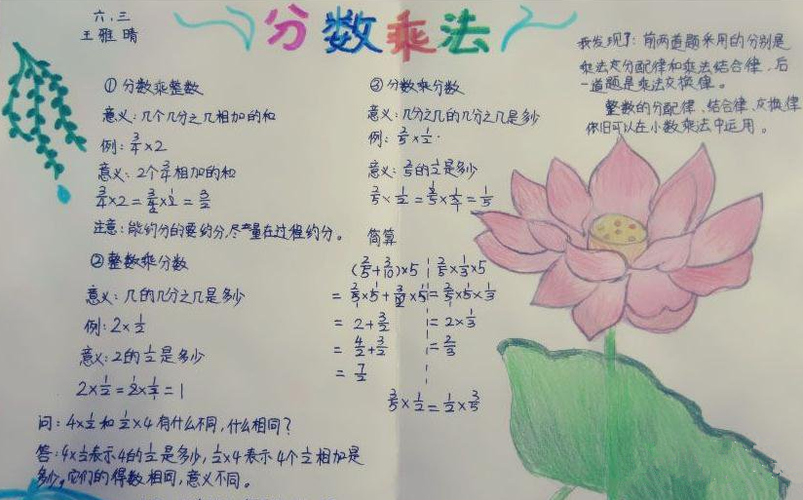 六.三
王雅晴
分数乘法
① 分数乘整数
意义:几个几分之几相加的和
例: 3/4×2
意义: 2个3/4相加的和
3/4×2=3/4×2=3/2
注意:能约分的要约分,尽量在过程约分。
②整数乘分数
意义:几的几分之几是多少
例: 2×1/2
意义:2的1/2是多少
2×1/2=2×1/2=1
问: 4×1/2和1/2×4有什么不同,什么相同?
答:4×1/2表示4的1/2是多少,1/2×4表示4个1/2相加是
多少。它们的得数相同,意义不同。
③ 分数乘分数
意义:几分之几的几分之几是多少
例: 2/5×1/2.
意义: 2/5的1/2是多少
2/5×1/2=2/5×1/2=1/5
简算
(2/5+3/10)×5
=2/5×5+3/10×5
=2+3/2
=4/2+3/2
=7/2
2/5×1/3×5
=2/5×5×1/3
=2×1/3
=2/3
3/5×1/2=1/2×3/5
我发现了:前两道题采用的分别是
乘法交分配律和乘法结合律,后
一道题是乘法交换律。
整数的分配律、结合律、交换律
依旧可以在小数乘法中运用。